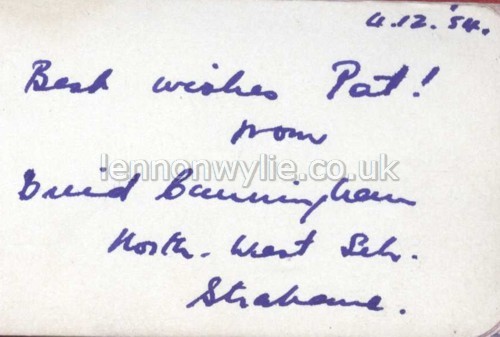 4.12.'54.
Best wishes Pat!
from
lennonwylie.co.uk
Enid Cunningham
North. West Sch.
Strabane.